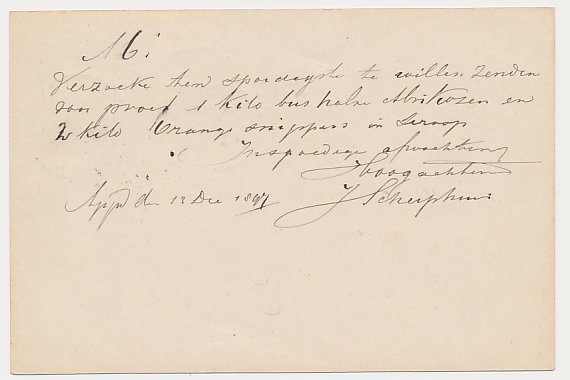 M:
Verzoeke ten spoedigste te willen zenden
voor proef 1 Kilo bus halve Abrikozen en
2 kilo Orange snippers in Siroop
In spoedige afwachting
Hoogachtend
Appd den 12 Dec 1897 J Scherphuis